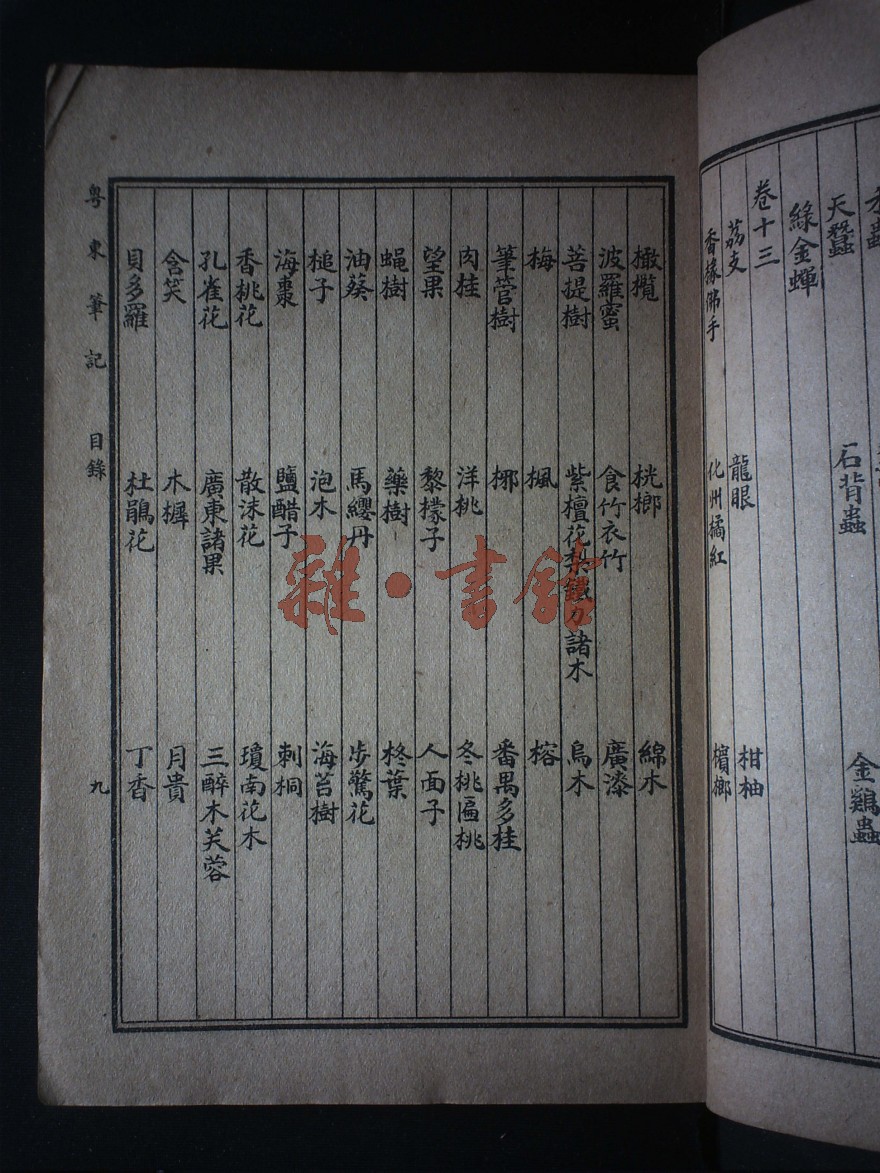 天蠶 石背蟲 金鷄蟲
綠金蟬
卷十三
荔支 龍眼 柑柚
香緣佛手 化州橘紅 檳榔
橄欖 桄榔 綿木
波羅蜜 食竹衣竹 廣漆
菩提樹 紫檀花梨鐵力諸木 烏木
梅 楓 榕
筆管樹 梛 番禺多桂
肉桂 洋桃 冬桃匾桃
望果 黎檬子 人面子
蝇樹 藥樹 柊葉
油葵 馬纓丹 步驚花
槌子 泡木 海苔樹
海棗 鹽醋子 刺桐
香桃花 散沫花 瓊南花木
孔雀花 廣東諸果 三醉木芙蓉
含笑 木樨 月貴
貝多羅 杜鵑花 丁香
粵東筆記 目錄 九
雜·書館